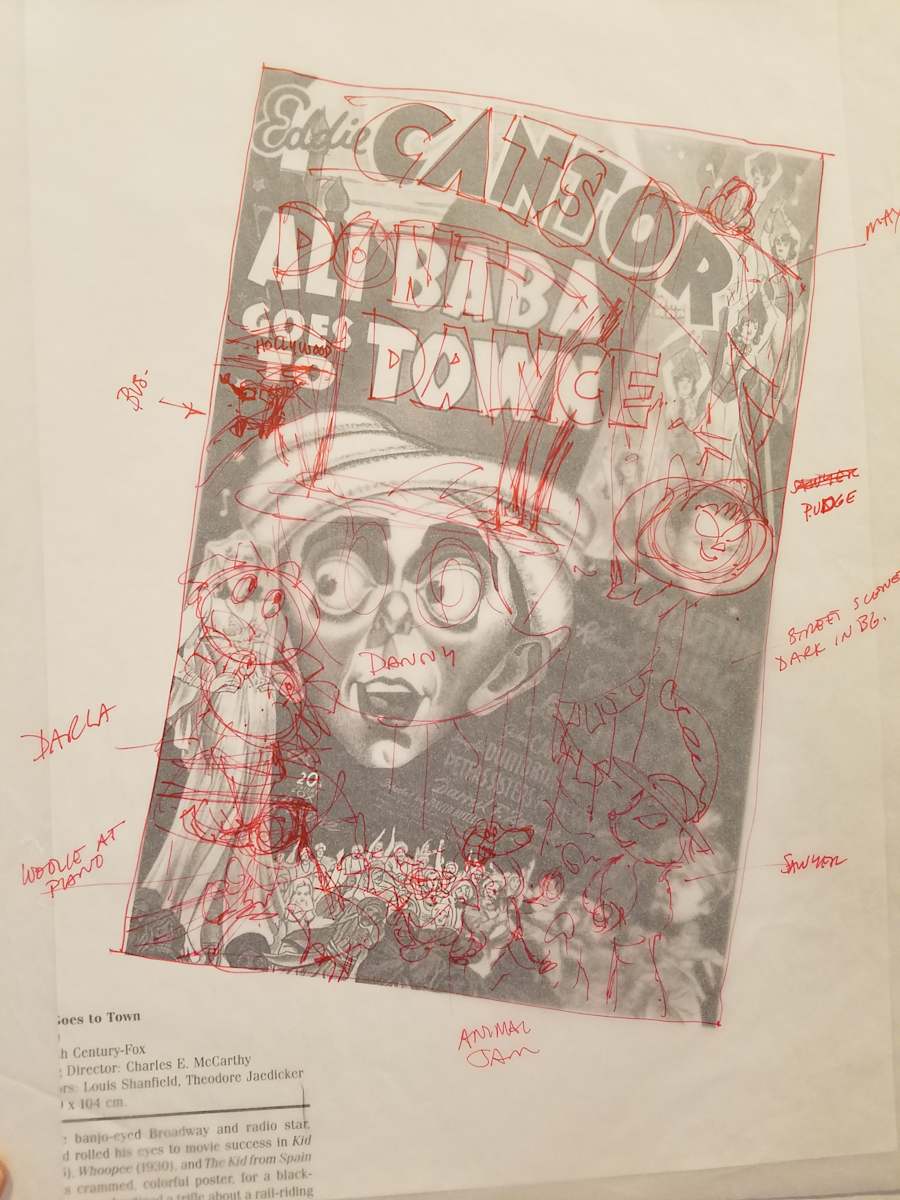 Eddie
CANTOR
ALI BABA
GOES
HOLLYWOOD
TO TOWN
BUS-
MAX
SAWYER
PUDGE
STREET SCENE
DARK IN BG.
DANNY
DARLA
20
WOOLIE AT
PIANO
SAWYER
ANIMAL
JAM
Goes to Town
h Century-Fox
Director: Charles E. McCarthy
rs: Louis Shanfield, Theodore Jaedicker
x 104 cm.
banjo-eyed Broadway and radio star,
d rolled his eyes to movie success in Kid
Whoopee (1930), and The Kid from Spain
s crammed, colorful poster, for a black-
a trifle about a rail-riding